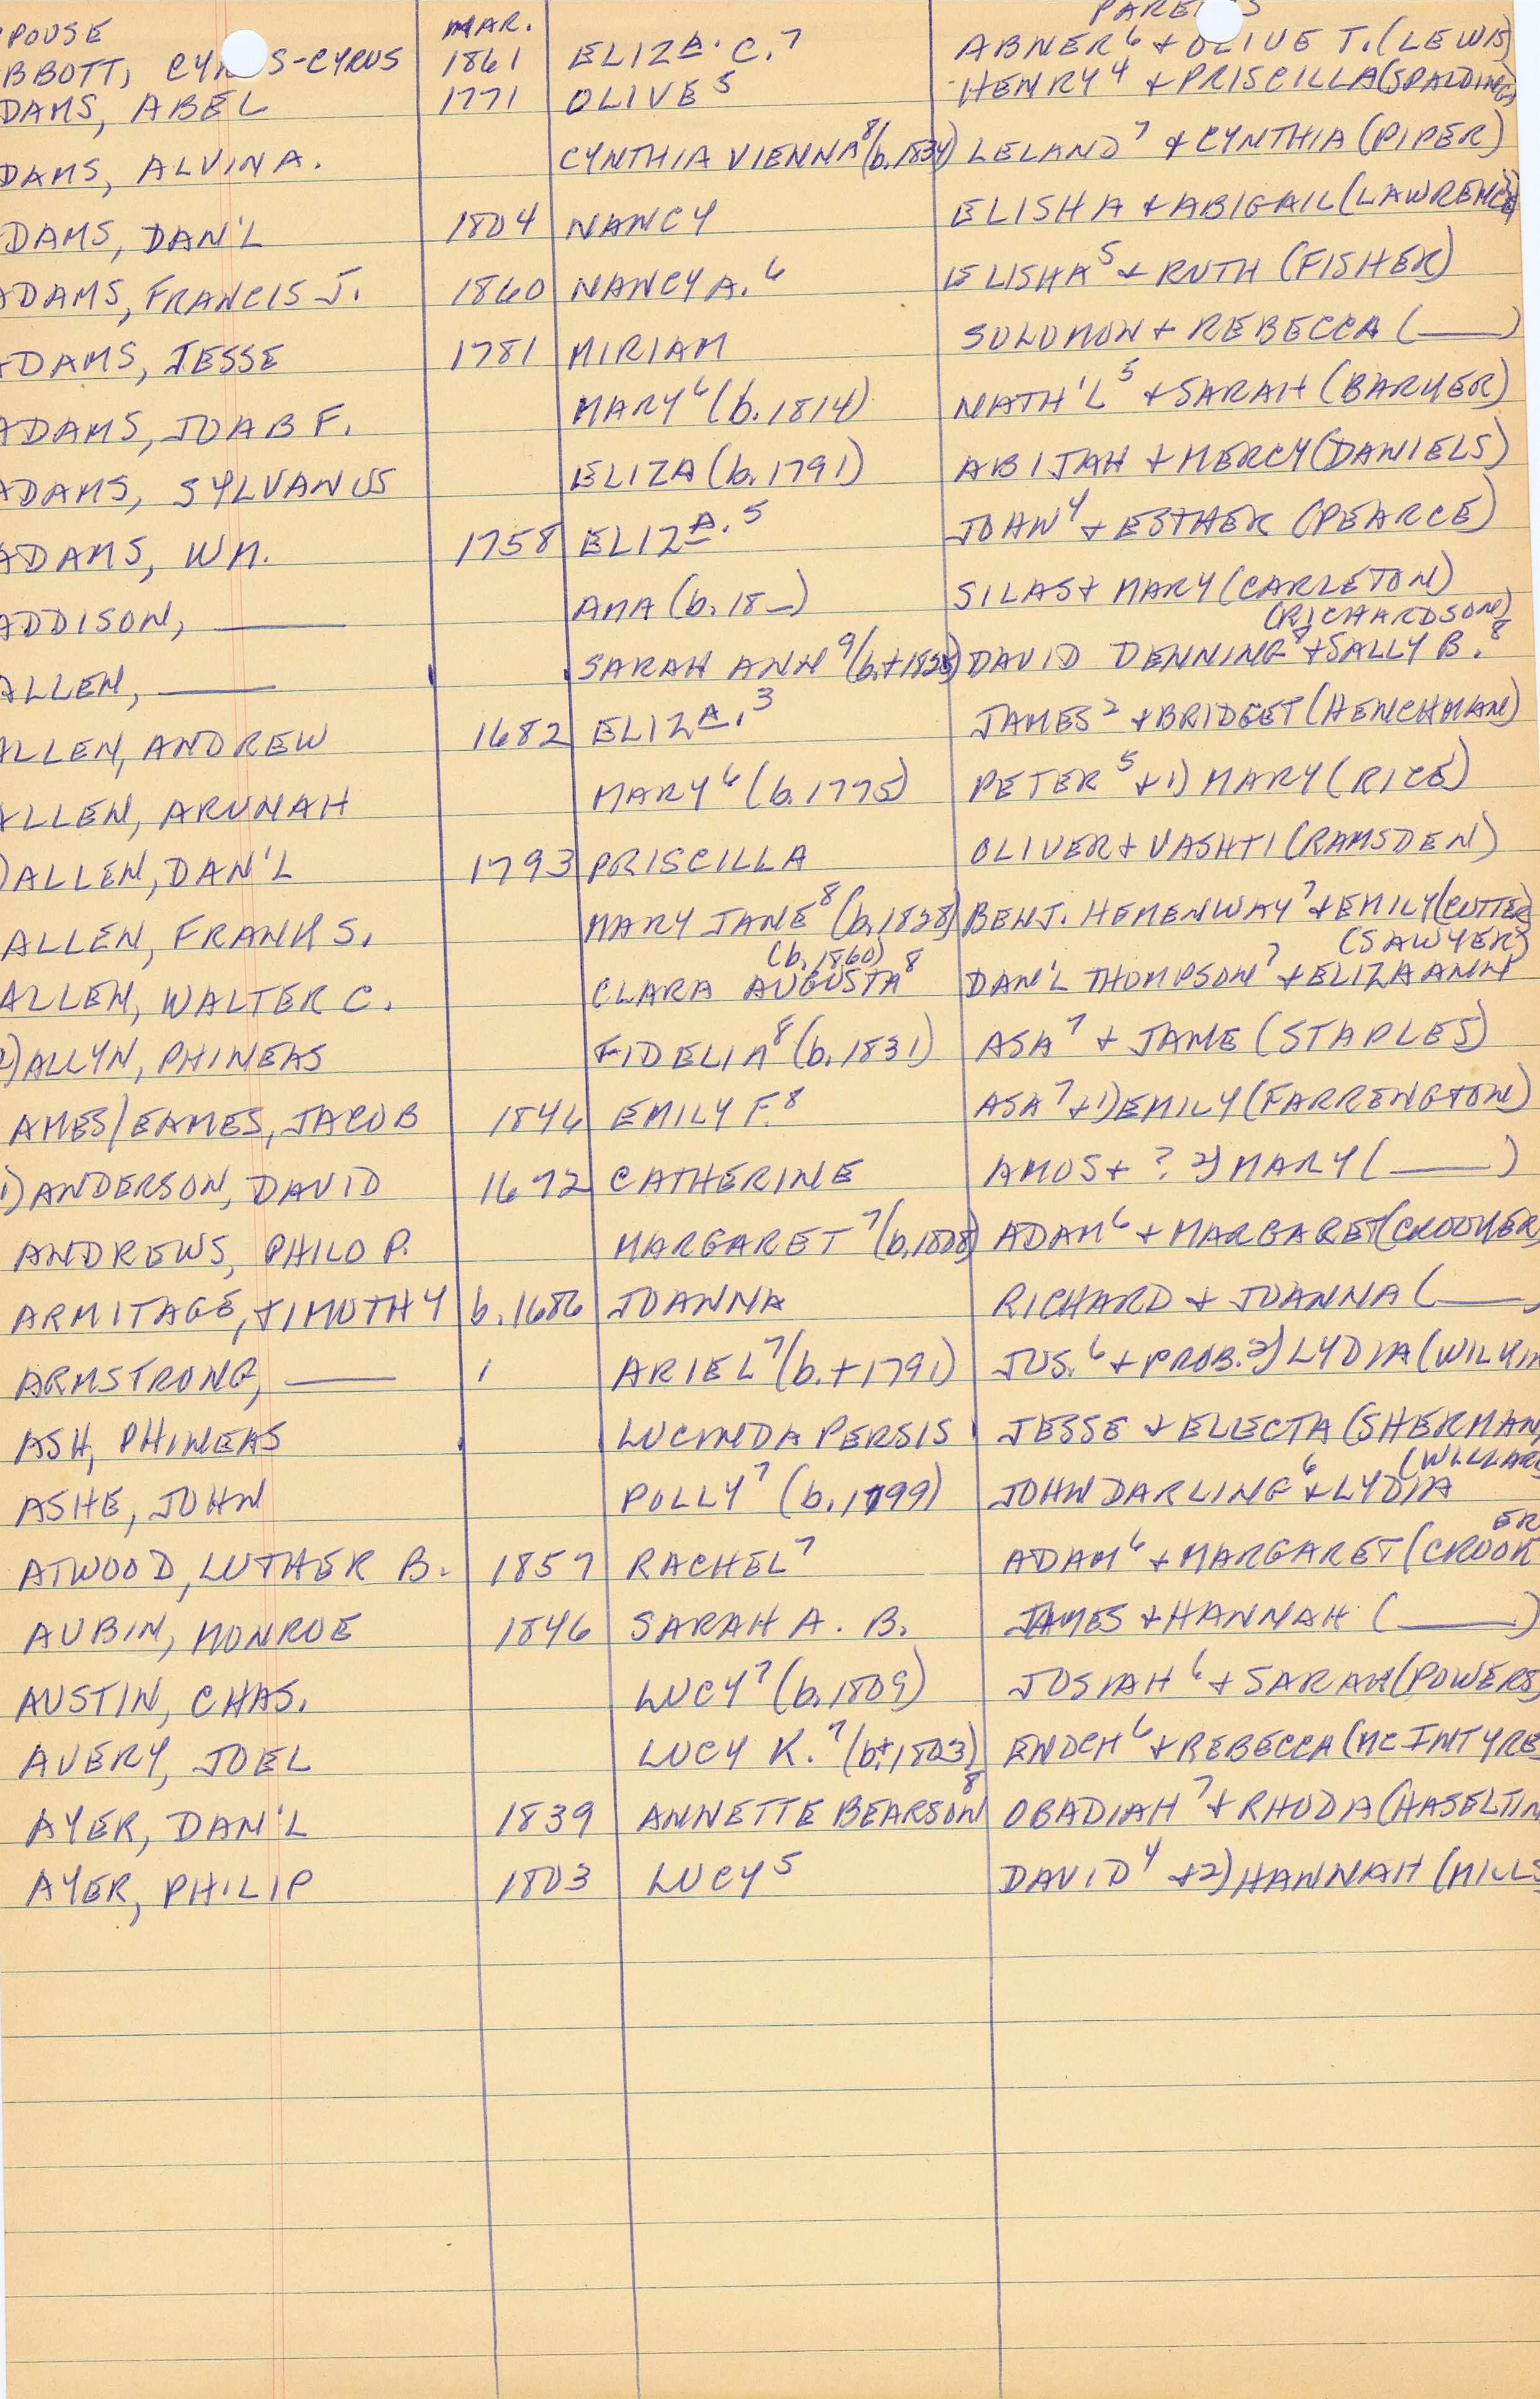 POUSE MAR. PARE S
BBOTT, CY S-CYRUS 1861 ELIZA. C.7 ABNER6 + OLIVE T. (LEWIS)
DAMS, ABEL 1771 OLIVE5 HENRY4 + PRISCILLA (SPALDING)
DAMS, ALVIN A. CYNTHIA VIENNA8 (b. 1834) LELAND7 & CYNTHIA (PIPER)
DAMS, DAN'L 1804 NANCY ELISHA + ABIGAIL (LAWRENCE)
ADAMS, FRANCIS J. 1860 NANCY A.6 ELISHA5 + RUTH (FISHER)
ADAMS, JESSE 1781 MIRIAM SOLOMON + REBECCA (___)
ADAMS, JOAB F. MARY6 (b. 1814) NATH'L5 + SARAH (BARKER)
ADAMS, SYLVANUS ELIZA (b. 1791) ABIJAH + MERCY (DANIELS)
ADAMS, WM. 1758 ELIZA.5 JOHN4 + ESTHER (PEARCE)
ADDISON, ___ AMA (b. 18_) SILAS + MARY (CARLETON)
(RICHARDSON)
ALLEN, ___ SARAH ANN9 (b.+1825) DAVID DENNING8 + SALLY B.8
ALLEN, ANDREW 1682 ELIZA.3 JAMES2 + BRIDGET (HENCHMAN)
ALLEN, ARUNAH MARY6 (b. 1775) PETER5 + 1) MARY (RICE)
)ALLEN, DAN'L 1793 PRISCILLA OLIVER + VASHTI (RAMSDEN)
ALLEN, FRANK S. MARY JANE8 (b. 1828) BENJ. HEMENWAY7 + EMILY (CUTTER)
(b. 1860) (SAWYER)
ALLEN, WALTER C. CLARA AUGUSTA8 DAN'L THOMPSON7 + ELIZA ANN
2)ALLYN, PHINEAS FIDELIA8 (b. 1831) ASA7 + JANE (STAPLES)
AMES/EAMES, JACOB 1846 EMILY F.8 ASA7 + 1) EMILY (FARRENGTON)
1) ANDERSON, DAVID 1672 CATHERINE AMOS + ? 2) MARY (___)
ANDREWS, PHILO P. MARGARET7 (b. 1808) ADAM6 + MARGARET (CROOKER)
ARMITAGE, TIMOTHY b. 1686 JOANNA RICHARD + JOANNA (___)
ARMSTRONG, ___ ARIEL7 (b.+1791) JOS.6 + PROB. 2) LYDIA (WILKIN
ASH, PHINEAS LUCINDA PERSIS JESSE + ELECTA (SHERMAN)
(WILLARD
ASHE, JOHN POLLY7 (b. 1799) JOHN DARLING6 + LYDIA
ER
ATWOOD, LUTHER B. 1857 RACHEL7 ADAM6 + MARGARET (CROOK
AUBIN, MONROE 1846 SARAH A. B. JAMES + HANNAH (___)
AUSTIN, CHAS. LUCY7 (b. 1809) JOSIAH6 + SARAH (POWERS)
AVERY, JOEL LUCY K.7 (b.+1803) ENOCH6 + REBECCA (MCINTYRE)
AYER, DAN'L 1839 ANNETTE BEARSON8 OBADIAH7 + RHODA (HASELTIN
AYER, PHILIP 1803 LUCY5 DAVID4 + 2) HANNAH (MILLS